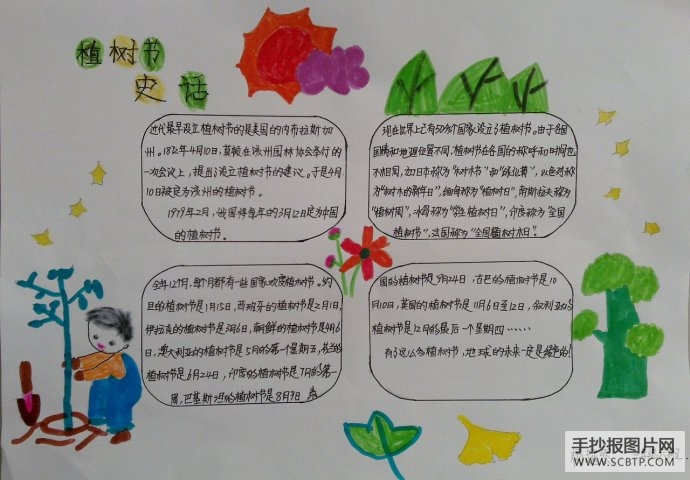 植树节
史话
近代最早设立植树节的是美国的内布拉斯加
州。1872年4月10日,莫顿在该州园林协会举行的
一次会议上,提出了设立植树节的建议。于是4月
10日被定为该州的植树节。
1979年2月,我国将每年的3月12日定为中国
的植树节。
现在世界上已有50多个国家设立了植树节。由于各国
国情和地理位置不同,植树节在各国的称呼和时间也
不相同,如日本称为“树木节”和“
”,以色列称
为“树木的新年日”,缅甸称为“植树日”,南斯拉夫称为
“植树周”,冰岛称为“学生植树日”,印度称为“全国
植树节”,法国称为“全国植树木日”。
全年12个月,每个月都有一些国家欢度植树节。约
旦的植树节是1月15日,西班牙的植树节是2月1日,
伊拉克的植树节是3月6日,朝鲜的植树节是4月6
日,澳大利亚的植树节是5月的第一个星期五,芬兰的
植树节是6月24日,印度的植树节是7月的第一
周,巴基斯坦的植树节是8月9日 泰
国的植树节是9月24日,古巴的植树节是10
月10日,英国的植树节是11月6日至12日,叙利亚的
植树节是12月的最后一个星期四……
有了这么多植树节,地球的未来一定是绿色的!
手抄报图片网
WWW.SCBTP.COM